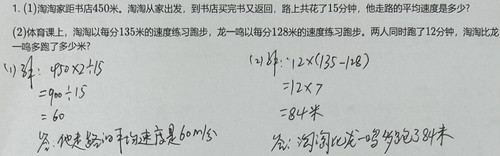 1. (1)淘淘家距书店450米。淘淘从家出发，到书店买完书又返回，路上共花了15分钟，他走路的平均速度是多少?
(2)体育课上，淘淘以每分135米的速度练习跑步，龙一鸣以每分128米的速度练习跑步。两人同时跑了12分钟，淘淘比龙
一鸣多跑了多少米?
(1)解: 450×2÷15
=900÷15
=60
答: 他走路的平均速度是60m/s
(2)解: 12×(135-128)
=12×7
=84米
答: 淘淘比龙一鸣多跑了84米